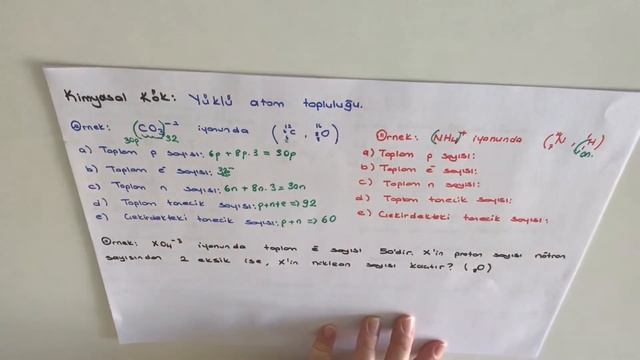 Kimyasal Kök: Yüklü atom topluluğu.
Örnek: (CO₃)⁻² iyonunda (¹²₆C, ¹⁶₈O)
30p 32
a) Toplam p sayısı: 6p + 8p.3 = 30p
b) Toplam e⁻ sayısı: 32
c) Toplam n sayısı: 6n + 8n.3 = 30n
d) Toplam tanecik sayısı: p+n+e => 92
e) Çekirdekteki tanecik sayısı: p+n => 60
Örnek: (NH₄)⁺ iyonunda (¹⁴₇N, ¹₁H)
0n
a) Toplam p sayısı:
b) Toplam e⁻ sayısı:
c) Toplam n sayısı:
d) Toplam tanecik sayısı:
e) Çekirdekteki tanecik sayısı:
Örnek: XO₄⁻³ iyonunda toplam e⁻ sayısı 50'dir. X'in proton sayısı nötron
sayısından 2 eksik ise, X'in nükleon sayısı kaçtır? (₈O)